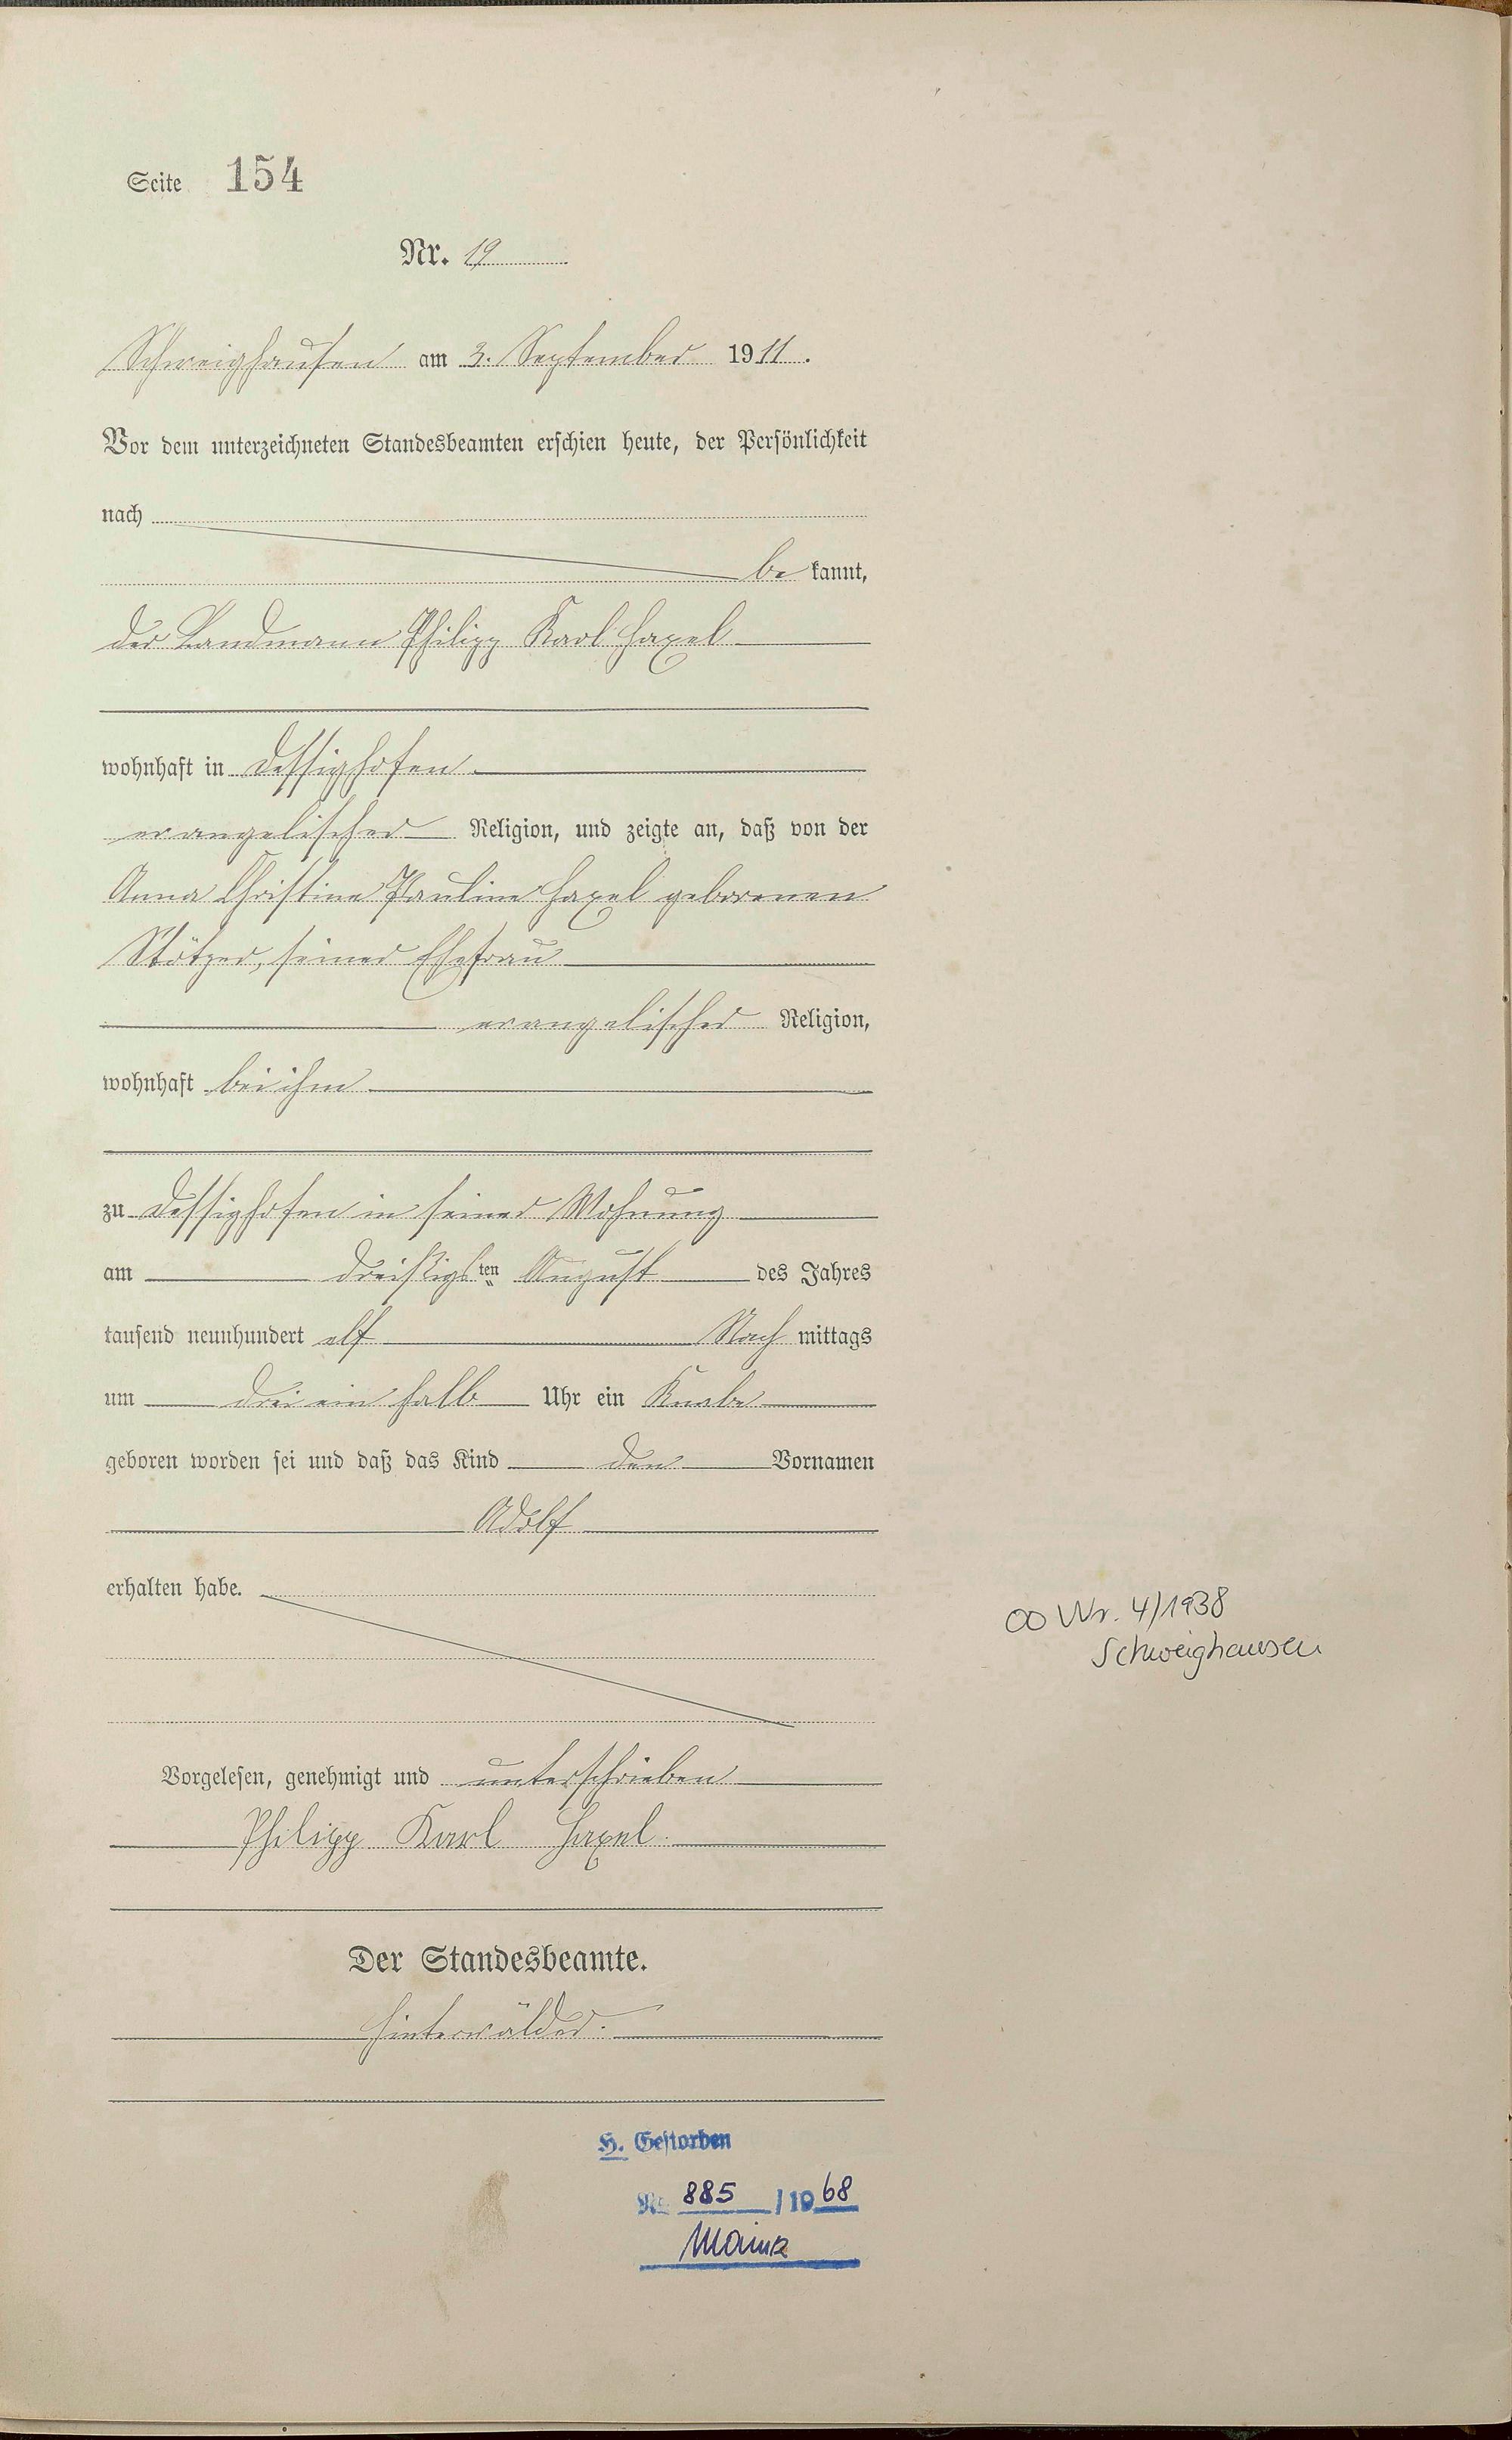 Seite 154
Nr. 19
Schweighausen am 3. September 1911.
Vor dem unterzeichneten Standesbeamten erschien heute, der Persönlichkeit
nach
be kannt,
der Landmann Philipp Karl Haxel
wohnhaft in Dessighofen
evangelischer Religion, und zeigte an, daß von der
Anna Christine Pauline Haxel geborenen
Stötzer, seiner Ehefrau
evangelischer Religion,
wohnhaft bei ihm
zu Dessighofen in seiner Wohnung
am dreißigsten August des Jahres
tausend neunhundert elf Nach mittags
um drei ein halb Uhr ein Knabe
geboren worden sei und daß das Kind den Vornamen
Adolf
erhalten habe.
∞ Nr. 4/1938
Schweighausen
Vorgelesen, genehmigt und unterschrieben
Philipp Karl Haxel
Der Standesbeamte.
Hinterwälder.
H. Gestorben
Nr. 885 / 1968
Mainz